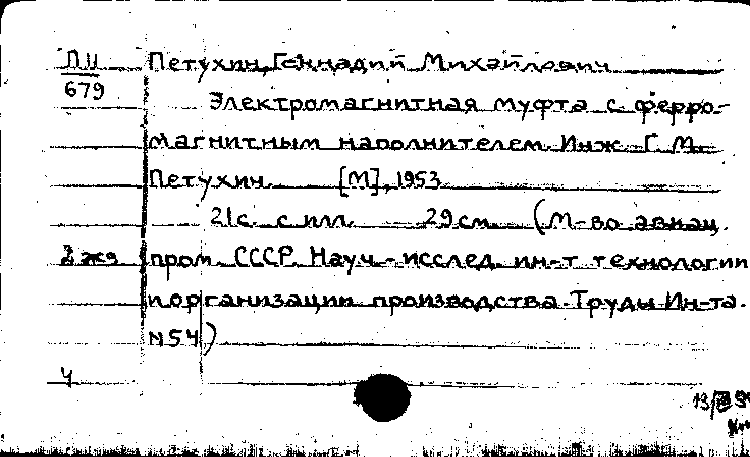 П11 Петухин, Геннадий Михайлович
679
Электромагнитная муфта с ферро-
магнитным наполнителем. Инж. Г. М.
Петухин. [М], 1953
21с. с илл. 29см (М-во авиац.
2 экз пром. СССР. Науч.-исслед. ин-т технологии
и организации производства. Труды Ин-та.
№54)
4
13/